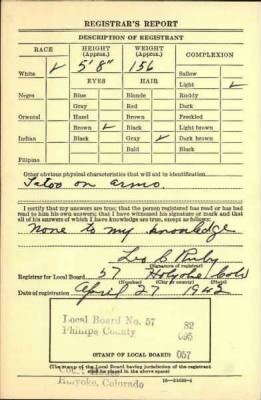 REGISTRAR'S REPORT
DESCRIPTION OF REGISTRANT
RACE HEIGHT (Approx.) WEIGHT (Approx.) COMPLEXION
White ✓ 5' 8" 156 Sallow
EYES HAIR Light ✓
Negro Blue Blonde Ruddy
Gray Red Dark
Oriental Hazel Brown Freckled
Brown ✓ Black Light brown
Indian Black Gray ✓ Dark brown
Bald Black
Filipino
Other obvious physical characteristics that will aid in identification
Tatoo on arms.
I certify that my answers are true; that the person registered has read or has had
read to him his own answers; that I have witnessed his signature or mark and that
all of his answers of which I have knowledge are true, except as follows:
None to my knowledge
Leo C Ruby
(Signature of registrar)
Registrar for Local Board 57 Holyoke Colo
(Number) (City or county) (State)
Date of registration April 27 1942
Local Board No. 57 82
Phillips County 095
057
(STAMP OF LOCAL BOARD)
(The stamp of the Local Board having jurisdiction of the registrant
shall be placed in the above space)
Holyoke, Colorado